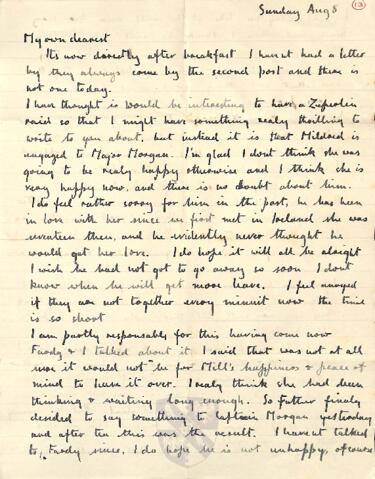 Sunday Aug 8
13
My own dearest
Its now directly after breakfast I havnt had a letter
by they always come by the second post and there is
not one today.
I have thought is would be interesting to have a Zeperlin
raid so that I might have something realy thrilling to
write to you about, but instead it is that Mildred is
engaged to Major Morgan. I'm glad I dont think she was
going to be realy happy otherwise and I think she is
very happy now, and there is no doubt about him.
I do feel rather sorry for him in the past, he has been
in love with her since he first met in Ireland she was
seventeen then, and he evidently never thought he
would get her love. I do hope it will all be alright
I wish he had not got to go away so soon I dont
know when he will get more leave. I feel anoyed
if they are not together every minuit now the time
is so short
I am partly responsable for this having come now
& I talked about it I said that was not at all
sure it would not be for Mill's happiness & peace of
mind to leave it over. I realy think she had been
thinking & waiting long enough. So father finaly
decided to say something to Captain Morgan yesterday
and after tea this was the result. I havnt talked
to since, I do hope he is not unhappy, of course